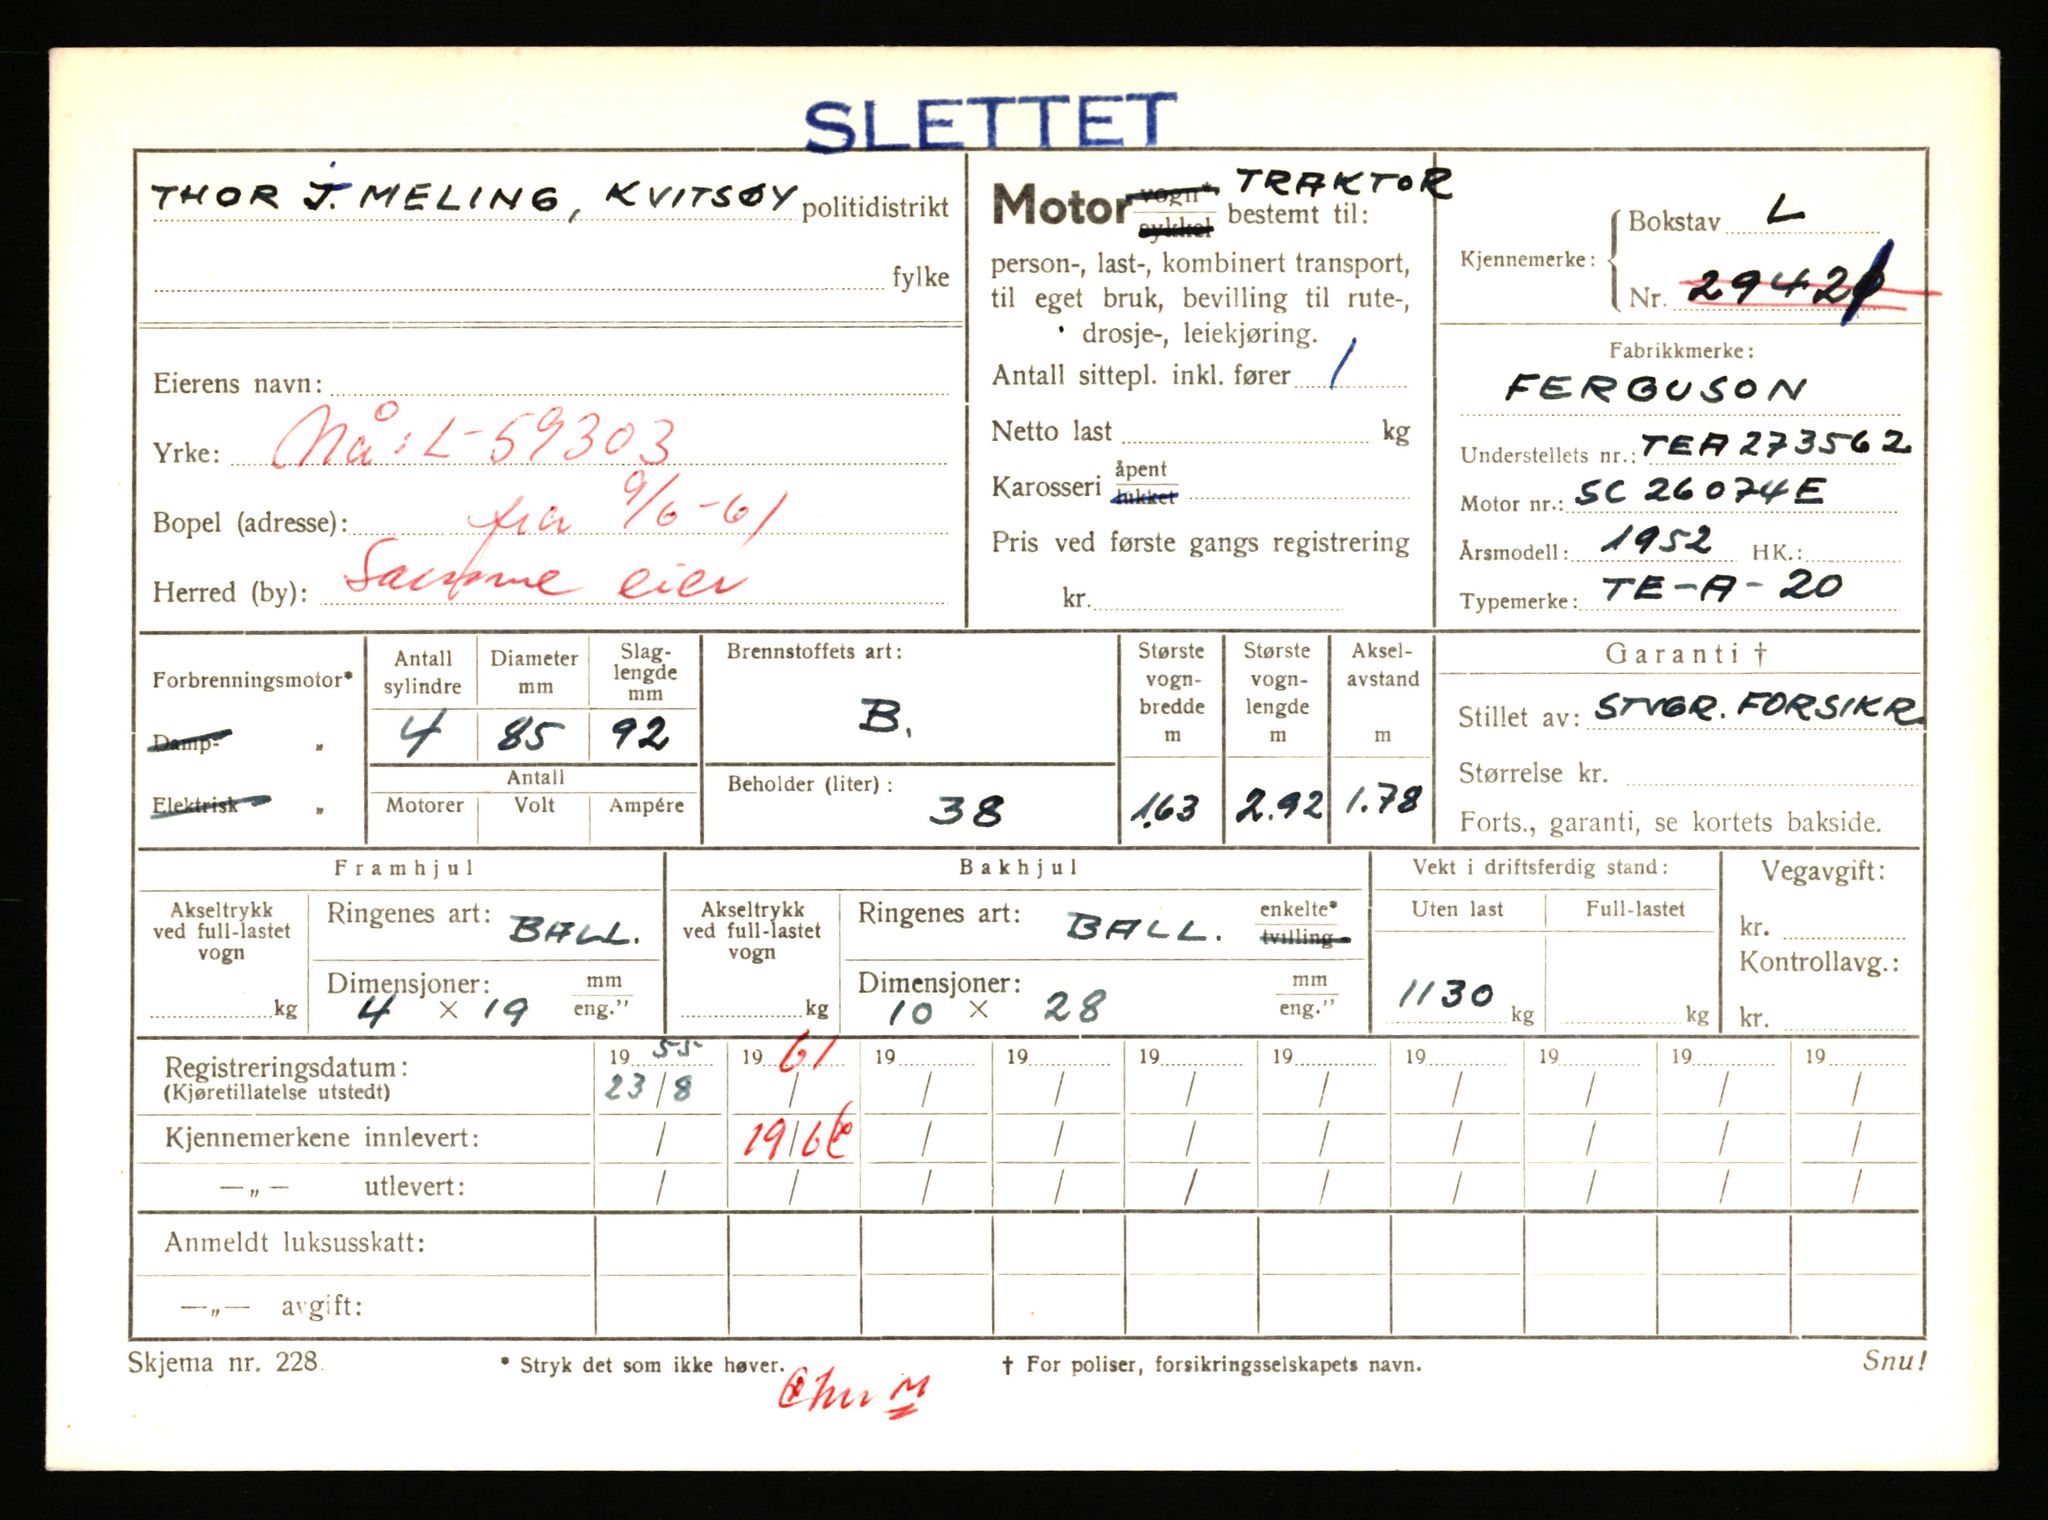 SLETTET
THOR J. MELING, KVITSØY politidistrikt
fylke
Eierens navn:
Yrke: Nå: L-59303
Bopel (adresse): fra 9/6-61
Herred (by): Samme eier
Motor vogn* sykkel bestemt til: TRAKTOR
person-, last-, kombinert transport,
til eget bruk, bevilling til rute-,
drosje-, leiekjøring.
Antall sittepl. inkl. fører 1
Netto last kg
Karosseri åpent lukket
Pris ved første gangs registrering
kr.
Kjennemerke: Bokstav L
Nr. 2942
Fabrikkmerke:
FERGUSON
Understellets nr.: TEA 273562
Motor nr.: SC 26074E
Årsmodell: 1952 HK.:
Typemerke: TE-A-20
Forbrenningsmotor*
Damp- „
Elektrisk „
Antall sylindre Diameter mm Slaglengde mm
4 85 92
Antall
Motorer Volt Ampére
Brennstoffets art:
B.
Beholder (liter):
38
Største vognbredde m
1.63
Største vognlengde m
2.92
Akselavstand m
1.78
Garanti †
Stillet av: STVGR. FORSIKR.
Størrelse kr.
Forts., garanti, se kortets bakside.
Framhjul
Akseltrykk ved full-lastet vogn
kg
Ringenes art: BALL.
Dimensjoner: mm
4 × 19 eng.”
Bakhjul
Akseltrykk ved full-lastet vogn
kg
Ringenes art: BALL. enkelte* tvilling
Dimensjoner: mm
10 × 28 eng.”
Vekt i driftsferdig stand:
Uten last Full-lastet
1130 kg kg
Vegavgift:
kr.
Kontrollavg.:
kr.
Registreringsdatum: 19 55 19 61 19 19 19 19 19 19 19 19
(Kjøretillatelse utstedt) 23/8 / / / / / / / / /
Kjennemerkene innlevert: / 19/6 / / / / / / / /
—„— utlevert: / / / / / / / / / /
Anmeldt luksusskatt:
—„— avgift:
Skjema nr. 228 * Stryk det som ikke høver. † For poliser, forsikringsselskapets navn. Snu!